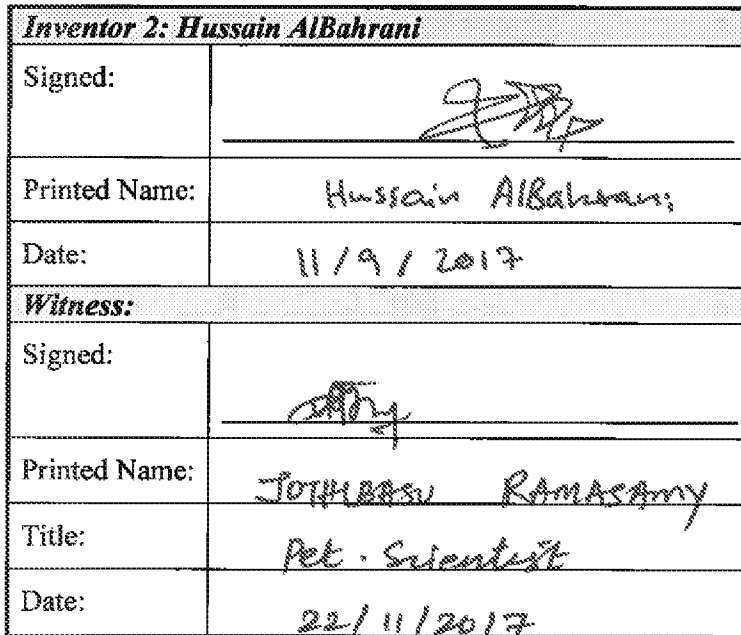 Inventor 2: Hussain AlBahrani
Signed:
Printed Name: Hussain AlBahrani
Date: 11/9/2017
Witness:
Signed:
Printed Name: JOTHIBASU RAMASAMY
Title: Pet. Scientist
Date: 22/11/2017